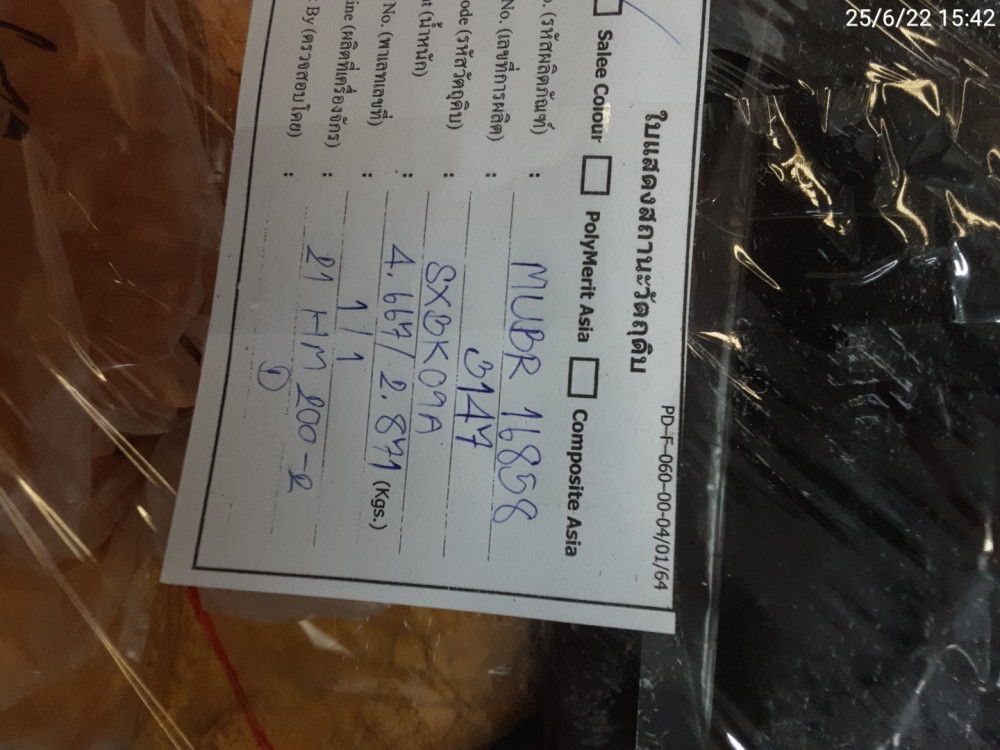 25/6/22 15:42
PD-F-060-00-04/01/64
ใบแสดงสถานะวัตถุดิบ
Salee Colour PolyMerit Asia Composite Asia
o. (รหัสผลิตภัณฑ์) : MUBR 16858
No. (เลขที่การผลิต) : 3147
ode (รหัสวัตถุดิบ) : SXBK09A
t (น้ำหนัก) : 4.667/2.871 (Kgs.)
No. (พาเลทเลขที่) : 1/1
ine (ผลิตที่เครื่องจักร) : 21 HM 200-2
By (ตรวจสอบโดย) :